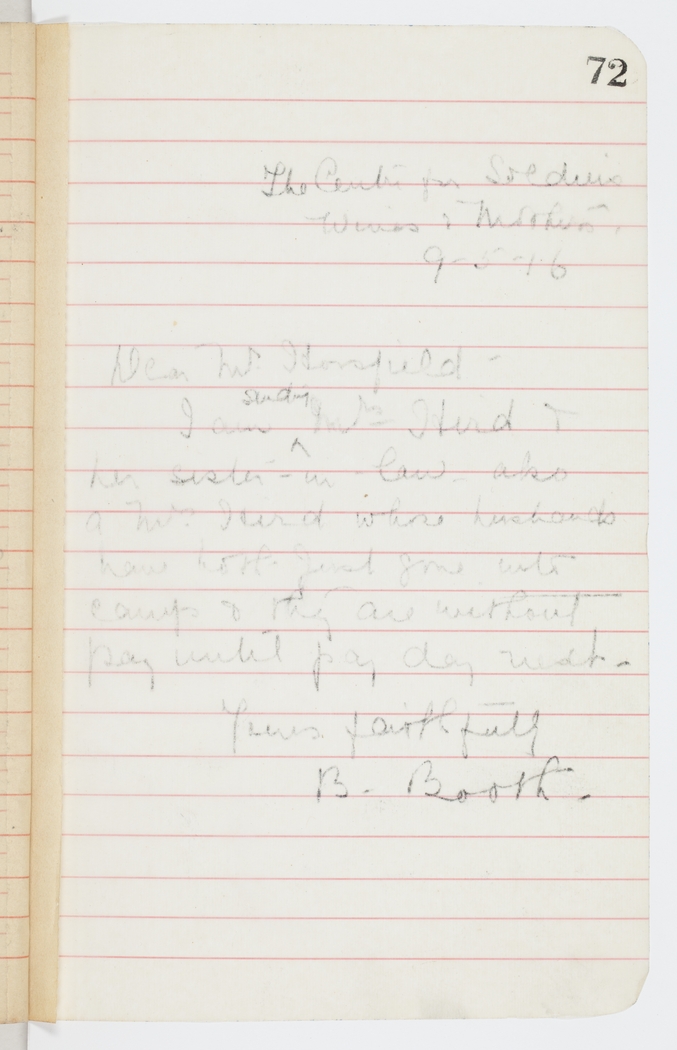 72
The Centre for Soldiers
Wives & Mothers,
9-5-16
Dear Mr. Horsfield -
sending
I am Mrs Hird &
her sister-in-law also
a Mrs. Hird whose husbands
have both just gone into
camp & they are without
pay until pay day next.
Yours faithfully
B. Booth.